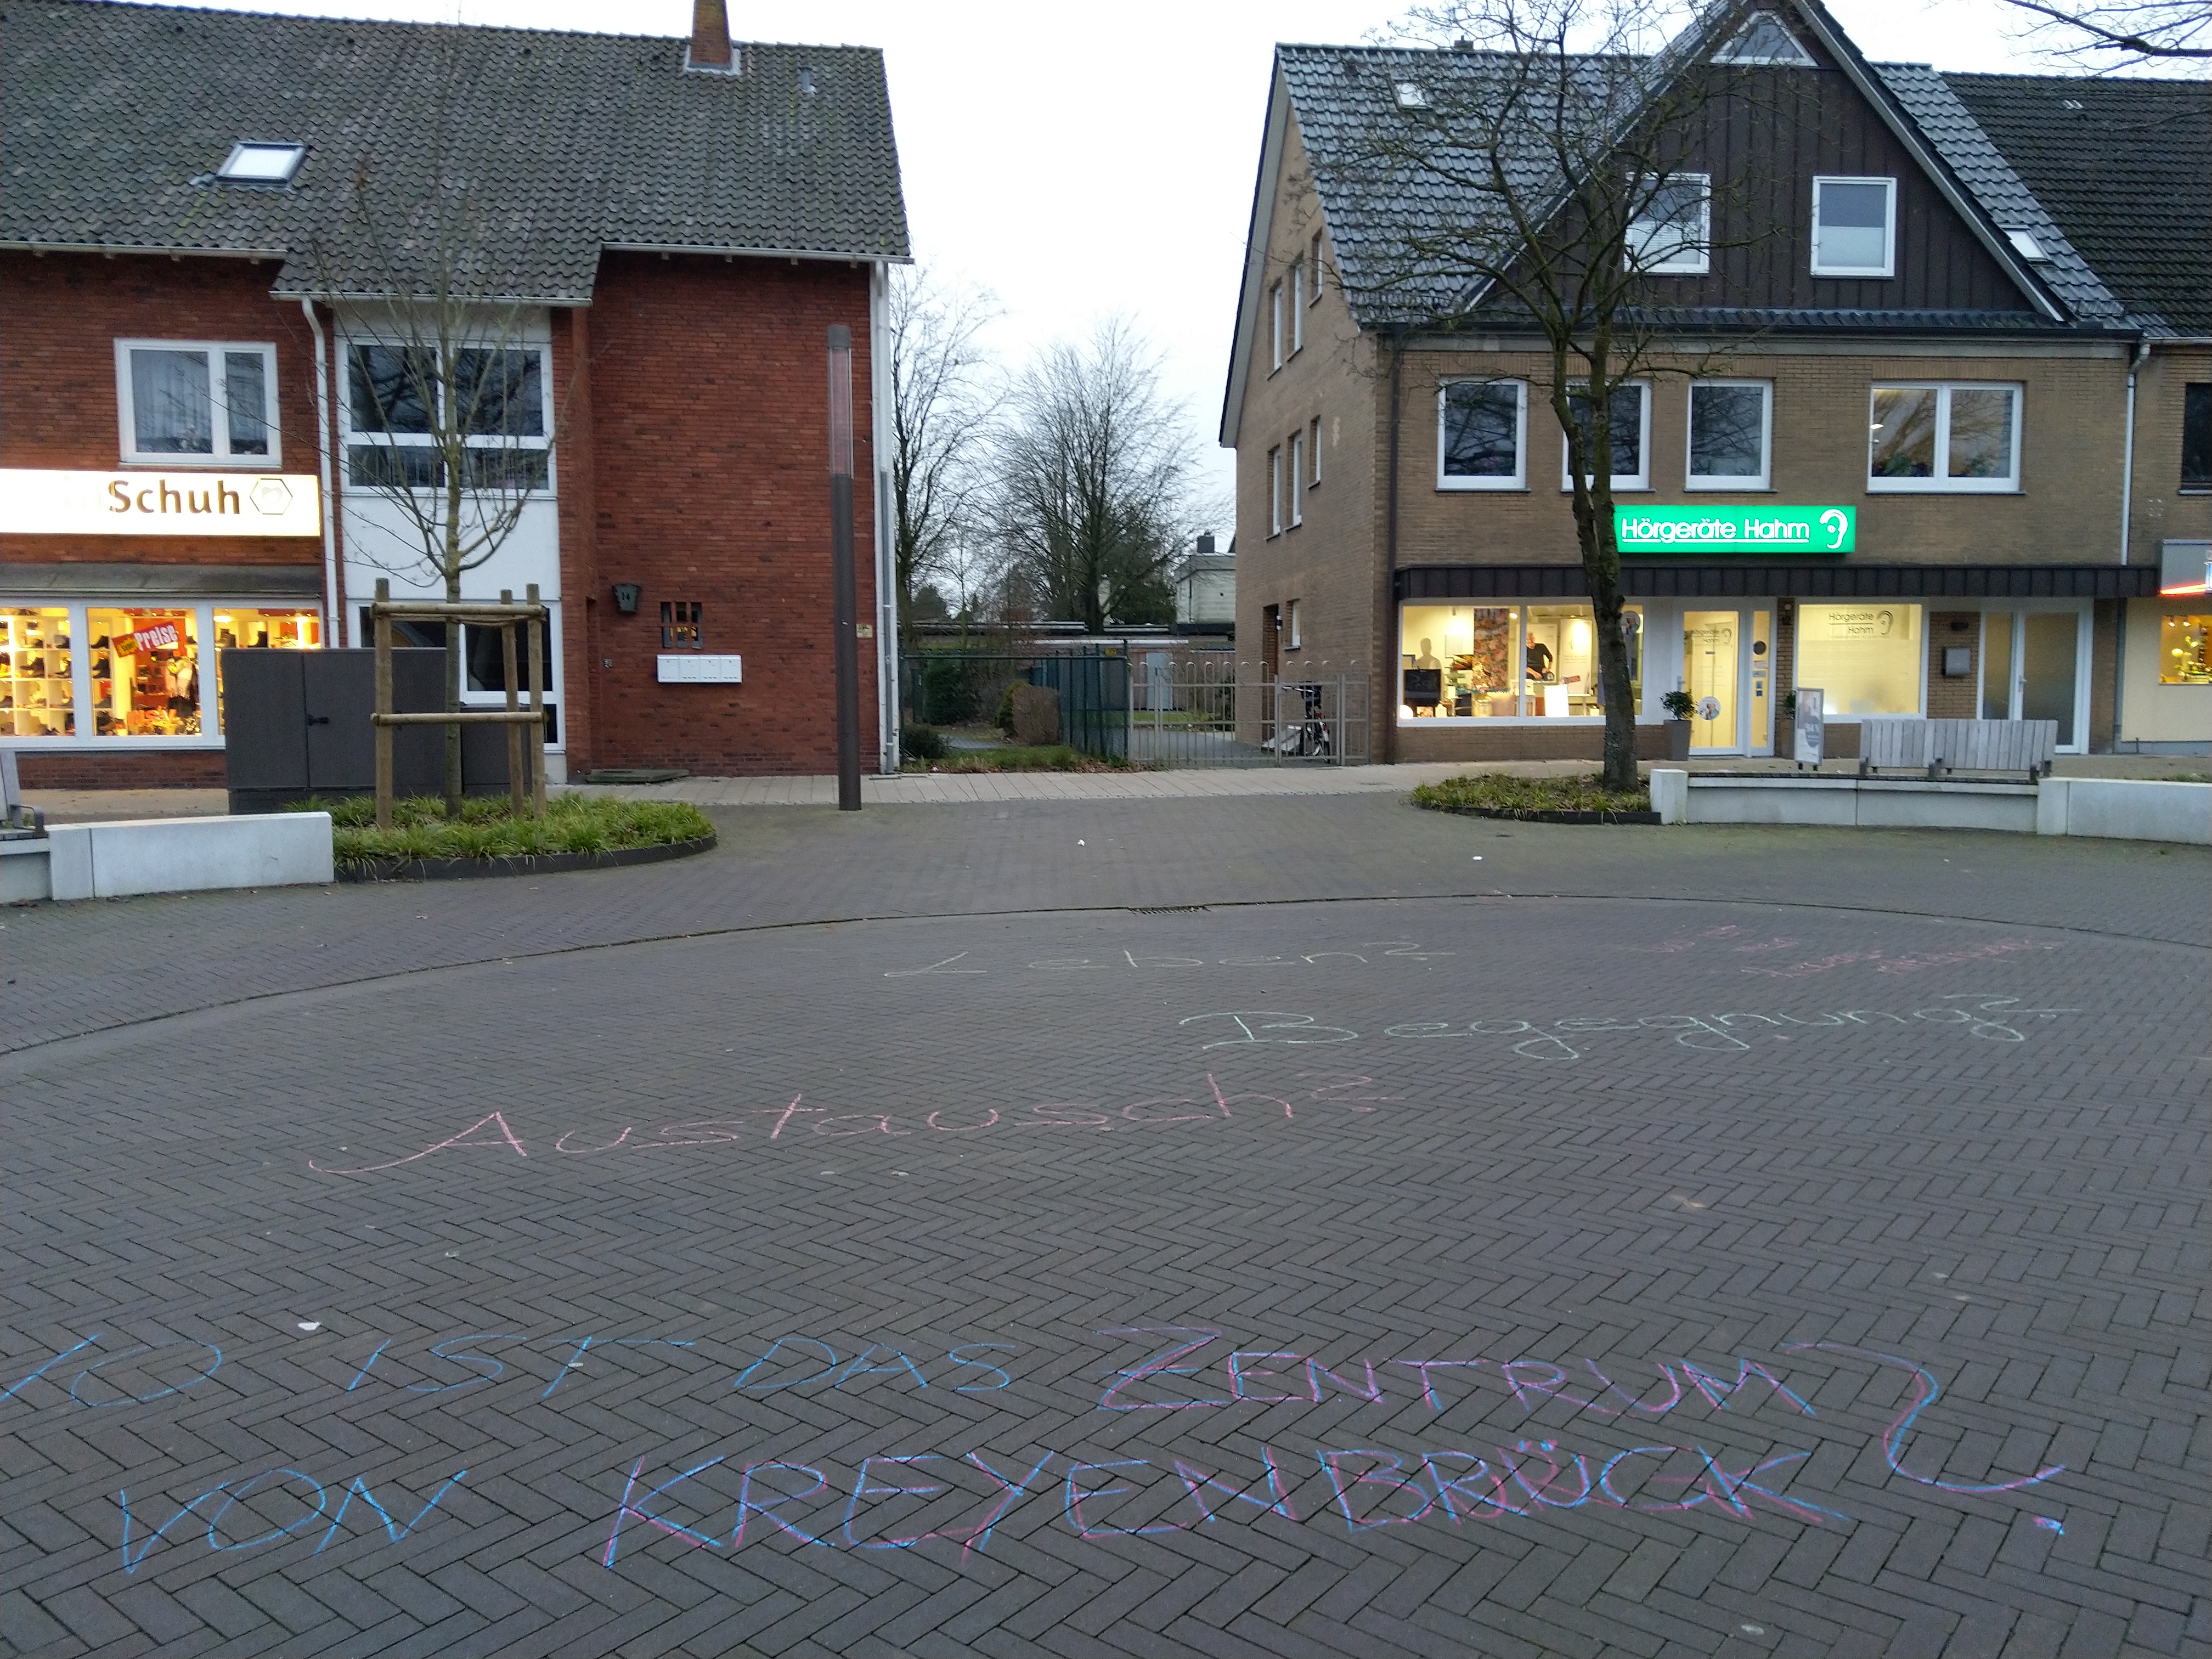 Schuh
Preise
14
Hörgeräte Hahm
Hörgeräte
Hahm
Leben?
Begegnung?
Austausch?
O IST DAS ZENTRUM
VON KREYENBRÜCK?